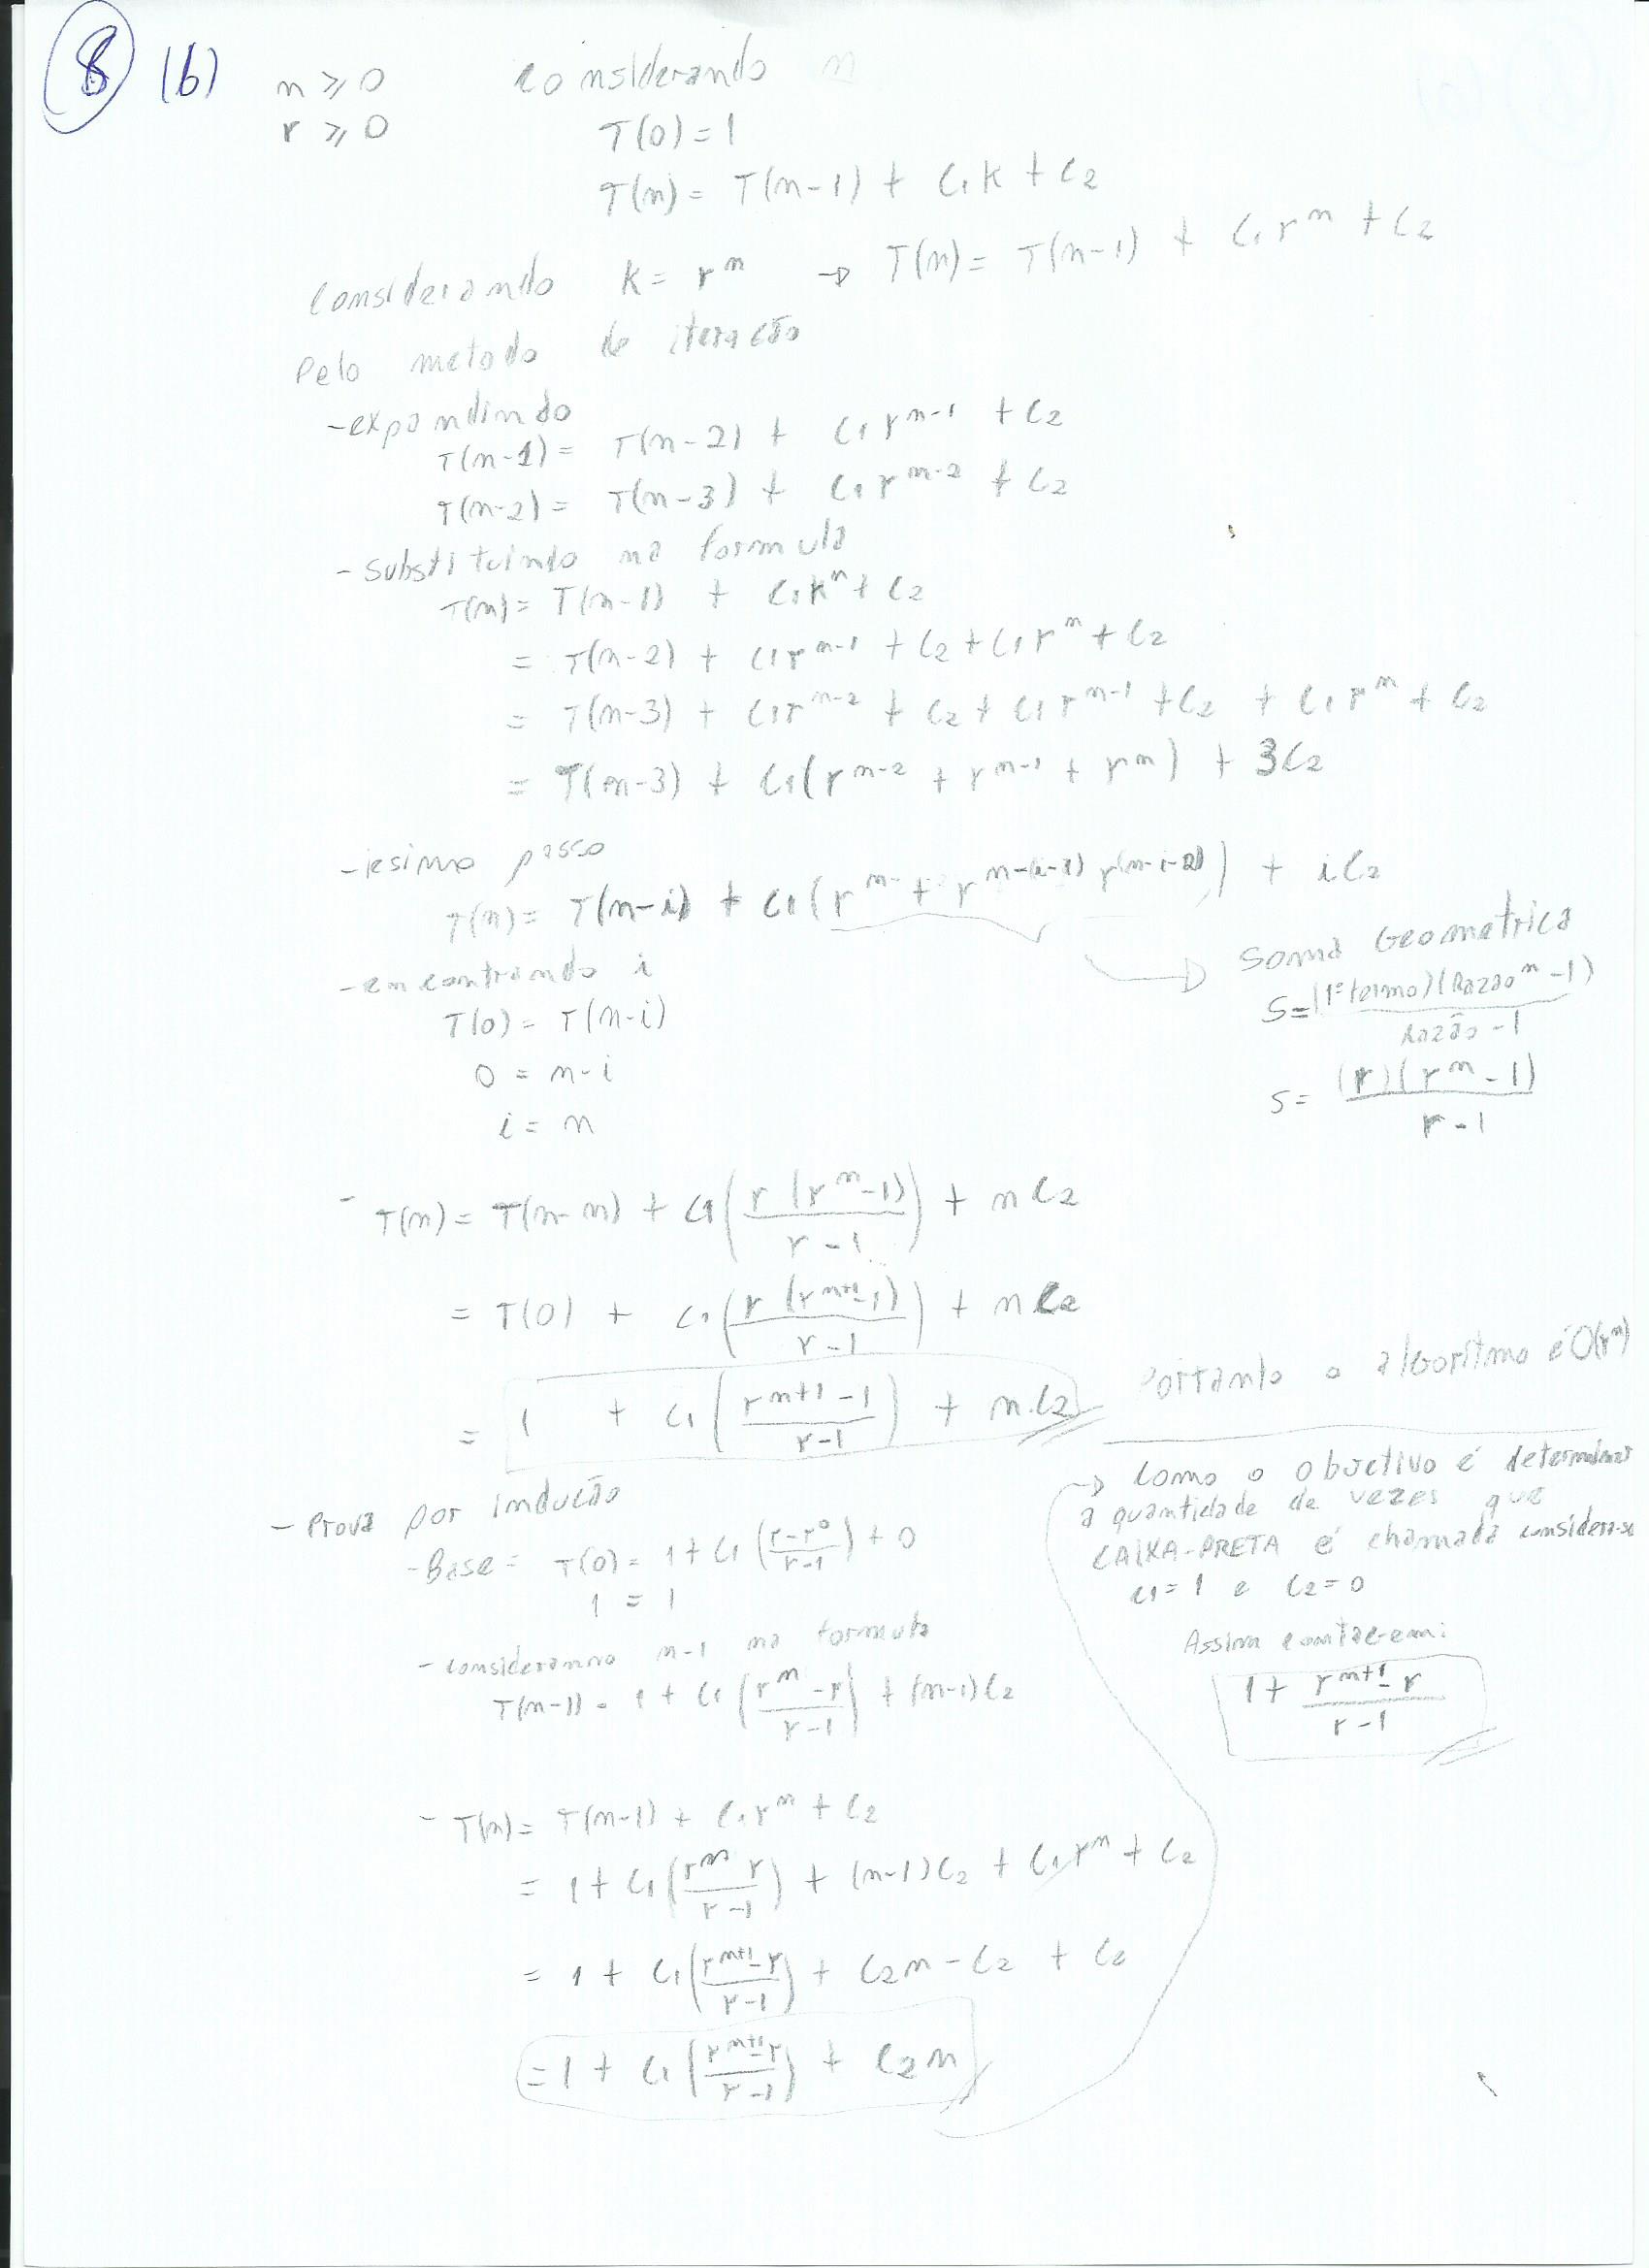 8 (b) n ≥ 0 considerando n
r ≥ 0 T(0) = 1
T(n) = T(n-1) + c₁k + c₂
considerando k = rⁿ → T(n) = T(n-1) + c₁rⁿ + c₂
Pelo metodo de iteração
- expandindo
T(n-1) = T(n-2) + c₁rⁿ⁻¹ + c₂
T(n-2) = T(n-3) + c₁rⁿ⁻² + c₂
- substituindo na formula
T(n) = T(n-1) + c₁kⁿ + c₂
= T(n-2) + c₁rⁿ⁻¹ + c₂ + c₁rⁿ + c₂
= T(n-3) + c₁rⁿ⁻² + c₂ + c₁rⁿ⁻¹ + c₂ + c₁rⁿ + c₂
= T(n-3) + c₁(rⁿ⁻² + rⁿ⁻¹ + rⁿ) + 3c₂
- iesimo passo
T(n) = T(n-i) + c₁( rⁿ + ) + ic₂
- encontrando i
T(0) = T(n-i)
0 = n-i
i = n
Soma Geometrica
S = (1º termo)(Razãoⁿ - 1) / Razão - 1
S = (r)(rⁿ - 1) / r - 1
- T(n) = T(n-n) + c₁( r (rⁿ - 1) / r - 1 ) + n c₂
= T(0) + c₁( r (rⁿ⁺¹ - 1) / r - 1 ) + n c₂
= 1 + c₁( rⁿ⁺¹ - 1 / r - 1 ) + n.c₂
Portanto o algoritmo é O(rⁿ)
- Prova por indução
- Base = T(0) = 1 + c₁( r - r⁰ / r - 1 ) + 0
1 = 1
- consideranno n-1 na formula
T(n-1) = 1 + c₁( rⁿ - r / r - 1 ) + (n-1)c₂
- T(n) = T(n-1) + c₁rⁿ + c₂
= 1 + c₁( rⁿ r / r - 1 ) + (n-1)c₂ + c₁rⁿ + c₂
= 1 + c₁( rⁿ⁺¹ - r / r - 1 ) + c₂n - c₂ + c₂
= 1 + c₁( rⁿ⁺¹ - r / r - 1 ) + c₂n
→ Como o objectivo é determinar
a quantidade de vezes que
CAIXA-PRETA é chamada considera-se
c₁ = 1 e c₂ = 0
Assim contagem:
1 + rⁿ⁺¹ - r / r - 1